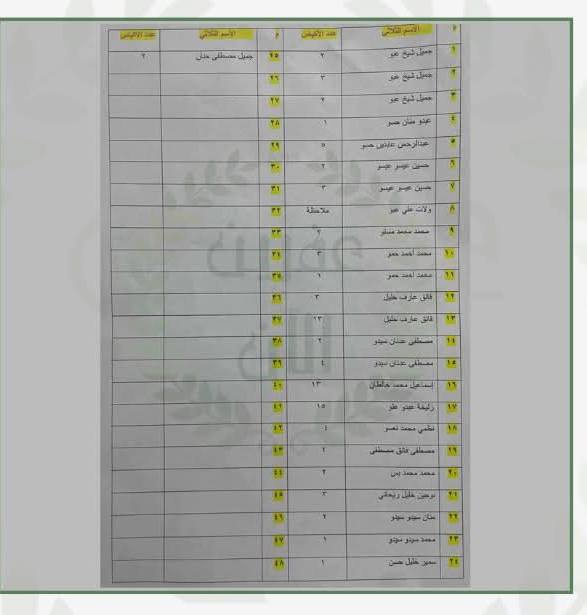 م الاسم الثلاثي عدد الأكياس م الاسم الثلاثي عدد الأكياس
١ جميل شيخ عبو ٢ ٢٥ جميل مصطفى حنان ٢
٢ جميل شيخ عبو ٣ ٢٦
٣ جميل شيخ عبو ٢ ٢٧
٤ عبدو منان حسو ١ ٢٨
٥ عبدالرحمن عابدين حسو ٥ ٢٩
٦ حسين عيسو عيسو ٢ ٣٠
٧ حسين عيسو عيسو ٣ ٣١
٨ ولات علي عبو ملاحظة ٣٢
٩ محمد محمد ٢ ٣٣
١٠ محمد أحمد حمو ٣ ٣٤
١١ محمد أحمد حمو ١ ٣٥
١٢ فائق عارف خليل ٣ ٣٦
١٣ فائق عارف خليل ١٣ ٣٧
١٤ مصطفى عدنان سيدو ٢ ٣٨
١٥ مصطفى عدنان سيدو ٤ ٣٩
١٦ إسماعيل محمد ١٣ ٤٠
١٧ زليخة عبدو علو ١٥ ٤١
١٨ محمد نعسو ٤ ٤٢
١٩ مصطفى فائق مصطفى ٤٣
٢٠ محمد محمد ٢ ٤٤
٢١ خليل ريحاني ٣ ٤٥
٢٢ منان سيدو سيدو ٢ ٤٦
٢٣ محمد سيدو سيدو ١ ٤٧
٢٤ سمير خليل حسن ١ ٤٨
عفرين
الآن